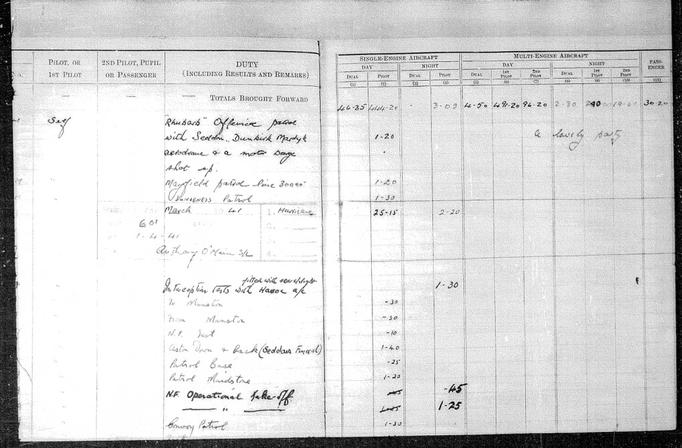 PILOT, OR 1ST PILOT
2ND PILOT, PUPIL OR PASSENGER
DUTY (INCLUDING RESULTS AND REMARKS)
SINGLE-ENGINE AIRCRAFT
MULTI-ENGINE AIRCRAFT
PASS-ENGER
DAY NIGHT DAY NIGHT
DUAL PILOT DUAL PILOT DUAL 1ST PILOT 2ND PILOT DUAL 1ST PILOT 2ND PILOT
(1) (2) (3) (4) (5) (6) (7) (8) (9) (10) (11)
TOTALS BROUGHT FORWARD
46-35 3-05 4-50 2-30 30-20
Self "Rhubarb" Offensive patrol
with Seddon, Dunkirk Mardyk 1-20 a lovely party
aerodrome & a motor barge
shot up.
Mayfield patrol Line 30000' 1-20
DUNGENESS Patrol 1-30
March 41 1. Hurricane 25-15 2-20
601
1-4-41
Interception tests with Havoc a/c 1-30
To Manston -30
From Manston -30
N.F. Test -10
Aston Down & back (Seddons Funeral) 1-40
Patrol Base -25
Patrol Maidstone 1-20
N.F. Operational take-off -45
" 1-25
Convoy Patrol 1-30